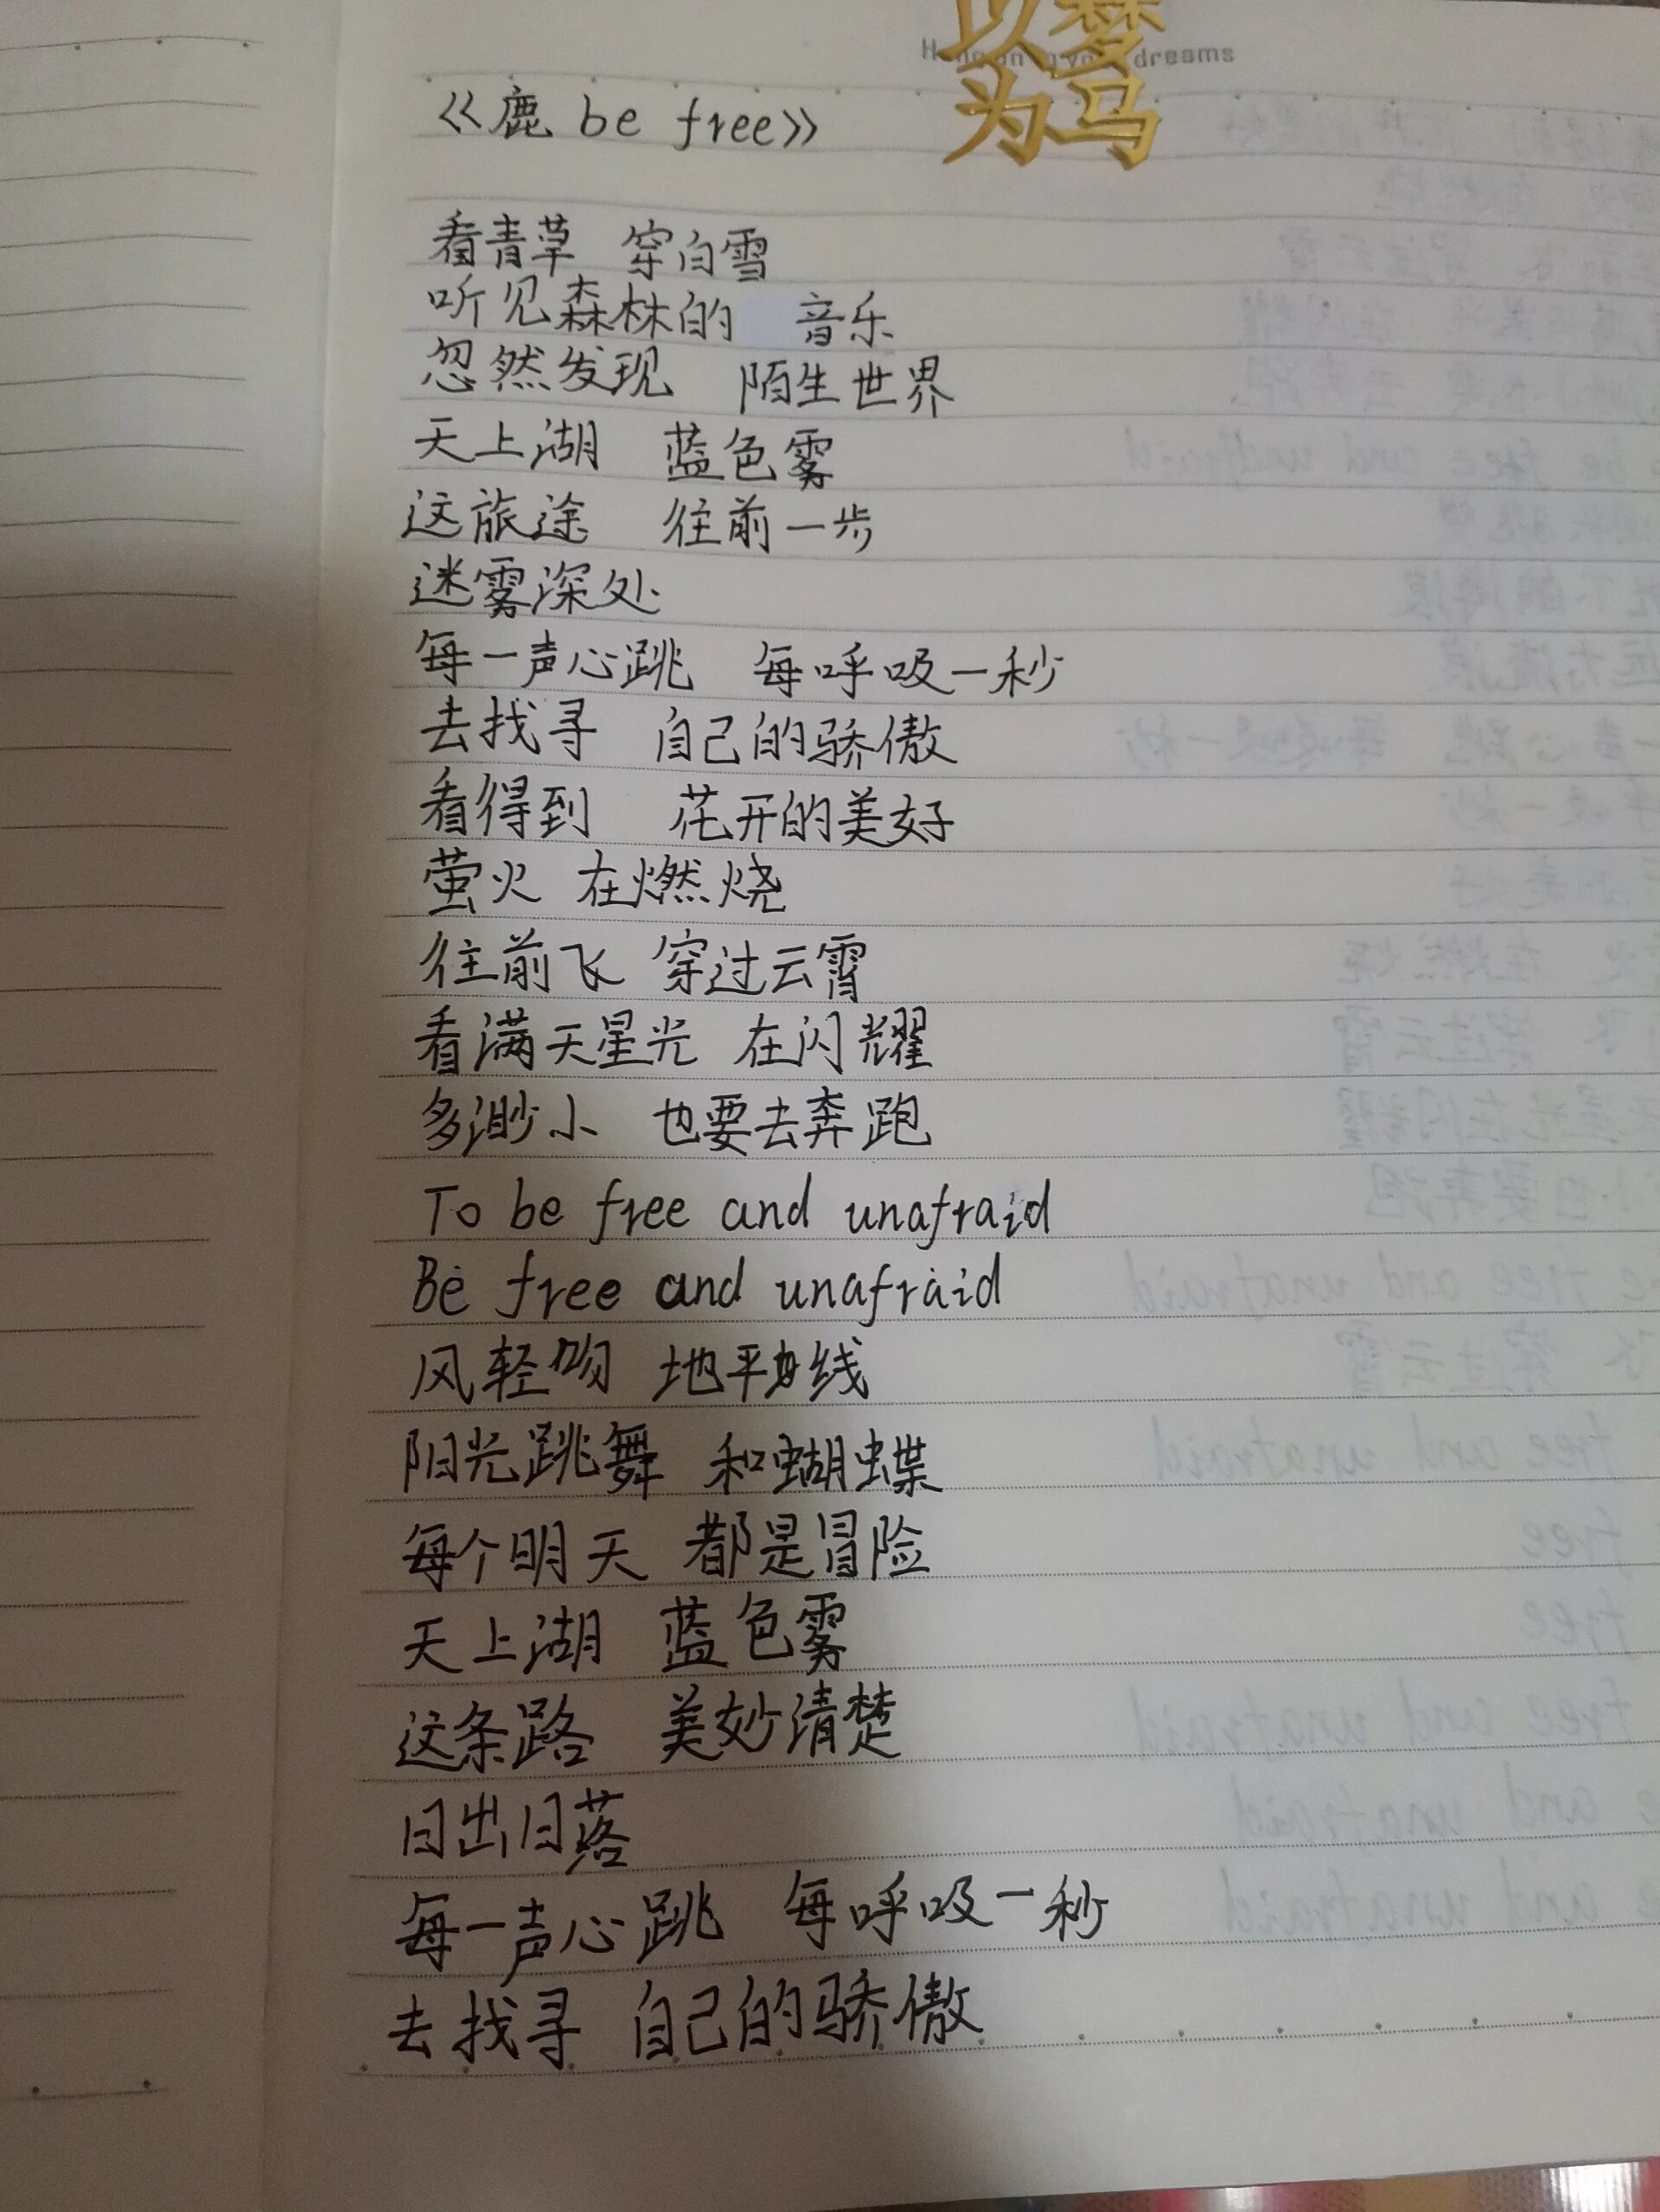 以梦
dreams
为马
《鹿 be free》
看青草 穿白雪
听见森林的 音乐
忽然发现 陌生世界
天上湖 蓝色雾
这旅途 往前一步
迷雾深处
每一声心跳 每呼吸一秒
去找寻 自己的骄傲
看得到 花开的美好
萤火 在燃烧
往前飞 穿过云霄
看满天星光 在闪耀
多渺小 也要去奔跑
To be free and unafraid
Be free and unafraid
风轻吻 地平线
阳光跳舞 和蝴蝶
每个明天 都是冒险
天上湖 蓝色雾
这条路 美妙清楚
日出日落
每一声心跳 每呼吸一秒
去找寻 自己的骄傲